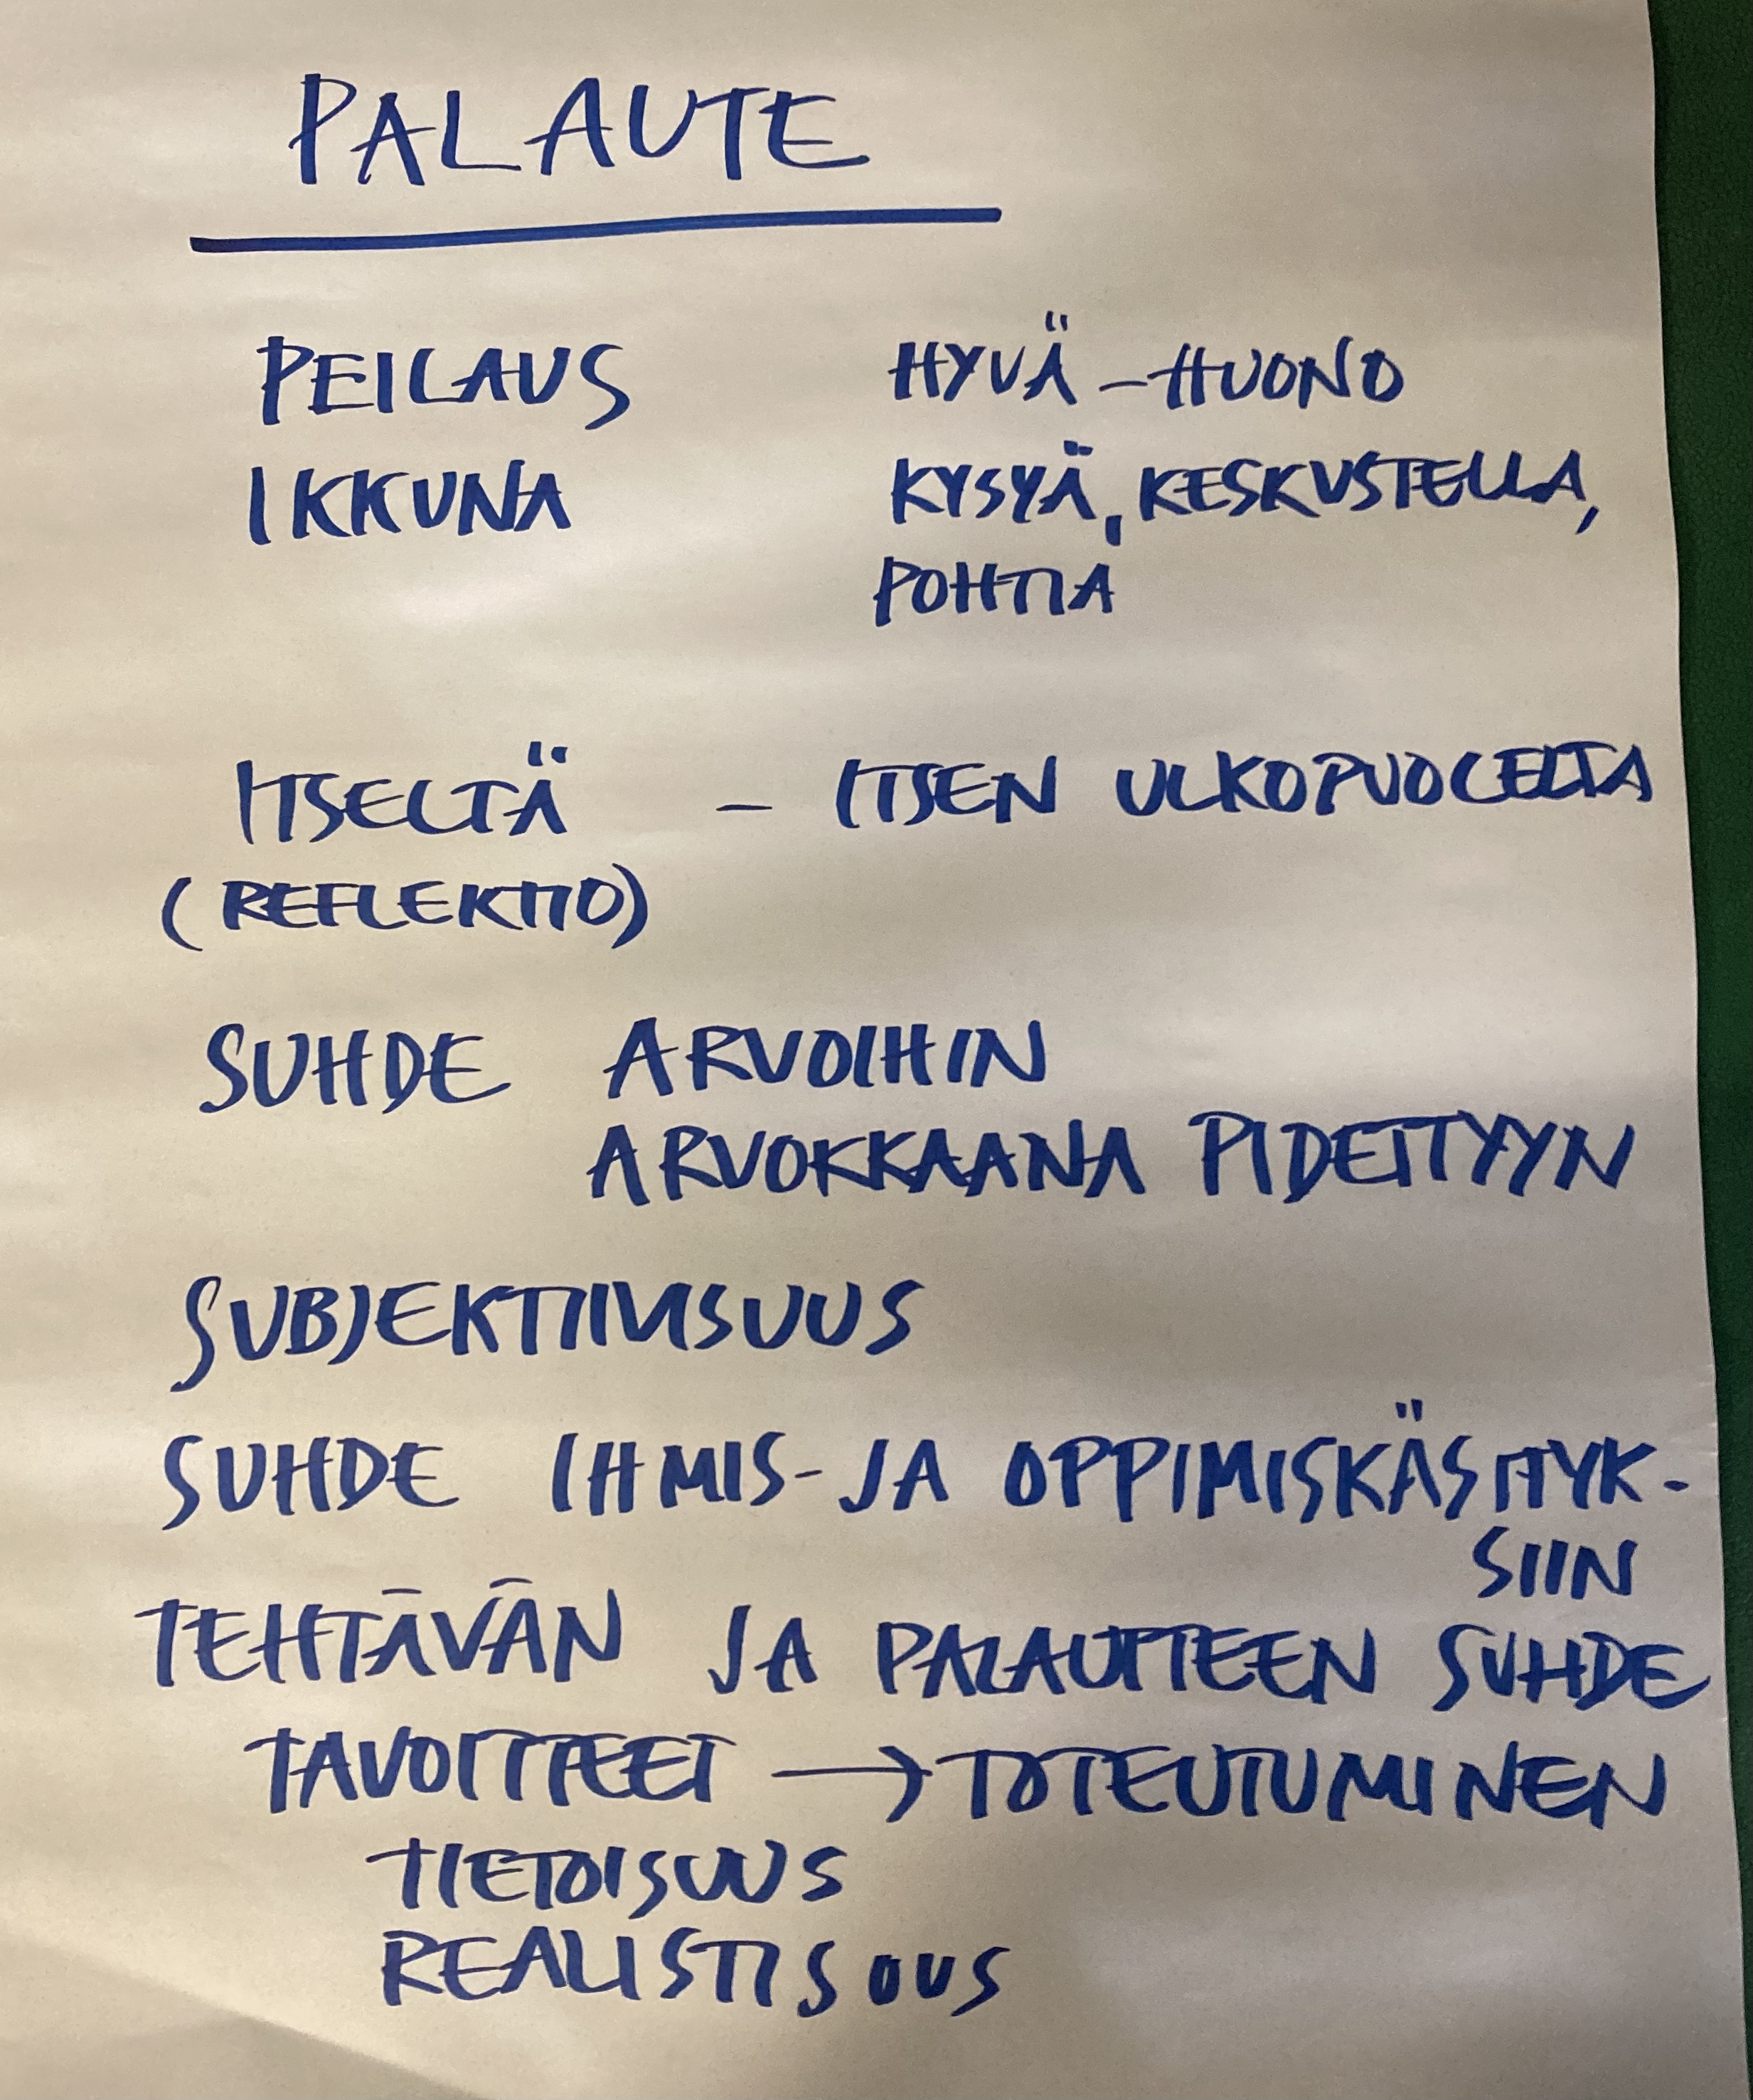 PALAUTE
PEILAUS HYVÄ – HUONO
IKKUNA KYSYÄ, KESKUSTELLA,
POHTIA
ITSELTÄ – ITSEN ULKOPUOLELTA
(REFLEKTIO)
SUHDE ARVOIHIN
ARVOKKAANA PIDETTYYN
SUBJEKTIIVISUUS
SUHDE IHMIS- JA OPPIMISKÄSITYK-
SIIN
TEHTÄVÄN JA PALAUTTEEN SUHDE
TAVOITTEET → TOTEUTUMINEN
TIETOISUUS
REALISTISUUS